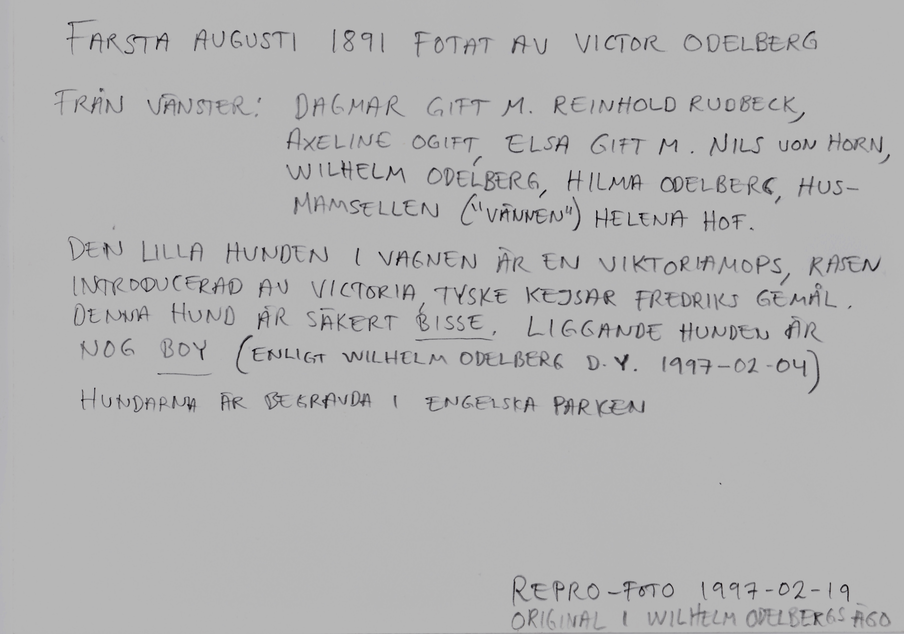 FARSTA AUGUSTI 1891 FOTAT AV VICTOR ODELBERG
FRÅN VÄNSTER: DAGMAR GIFT M. REINHOLD RUDBECK,
AXELINE OGIFT, ELSA GIFT M. NILS VON HORN,
WILHELM ODELBERG, HILMA ODELBERG, HUS-
MAMSELLEN ("VÄNNEN") HELENA HOF.
DEN LILLA HUNDEN I VAGNEN ÄR EN VIKTORIAMOPS, RASEN
INTRODUCERAD AV VICTORIA, TYSKE KEJSAR FREDRIKS GEMÅL.
DENNA HUND ÄR SÄKERT BISSE. LIGGANDE HUNDEN ÄR
NOG BOY (ENLIGT WILHELM ODELBERG D.Y. 1997-02-04)
HUNDARNA ÄR BEGRAVDA I ENGELSKA PARKEN
REPRO-FOTO 1997-02-19
ORIGINAL I WILHELM ODELBERGS ÄGO